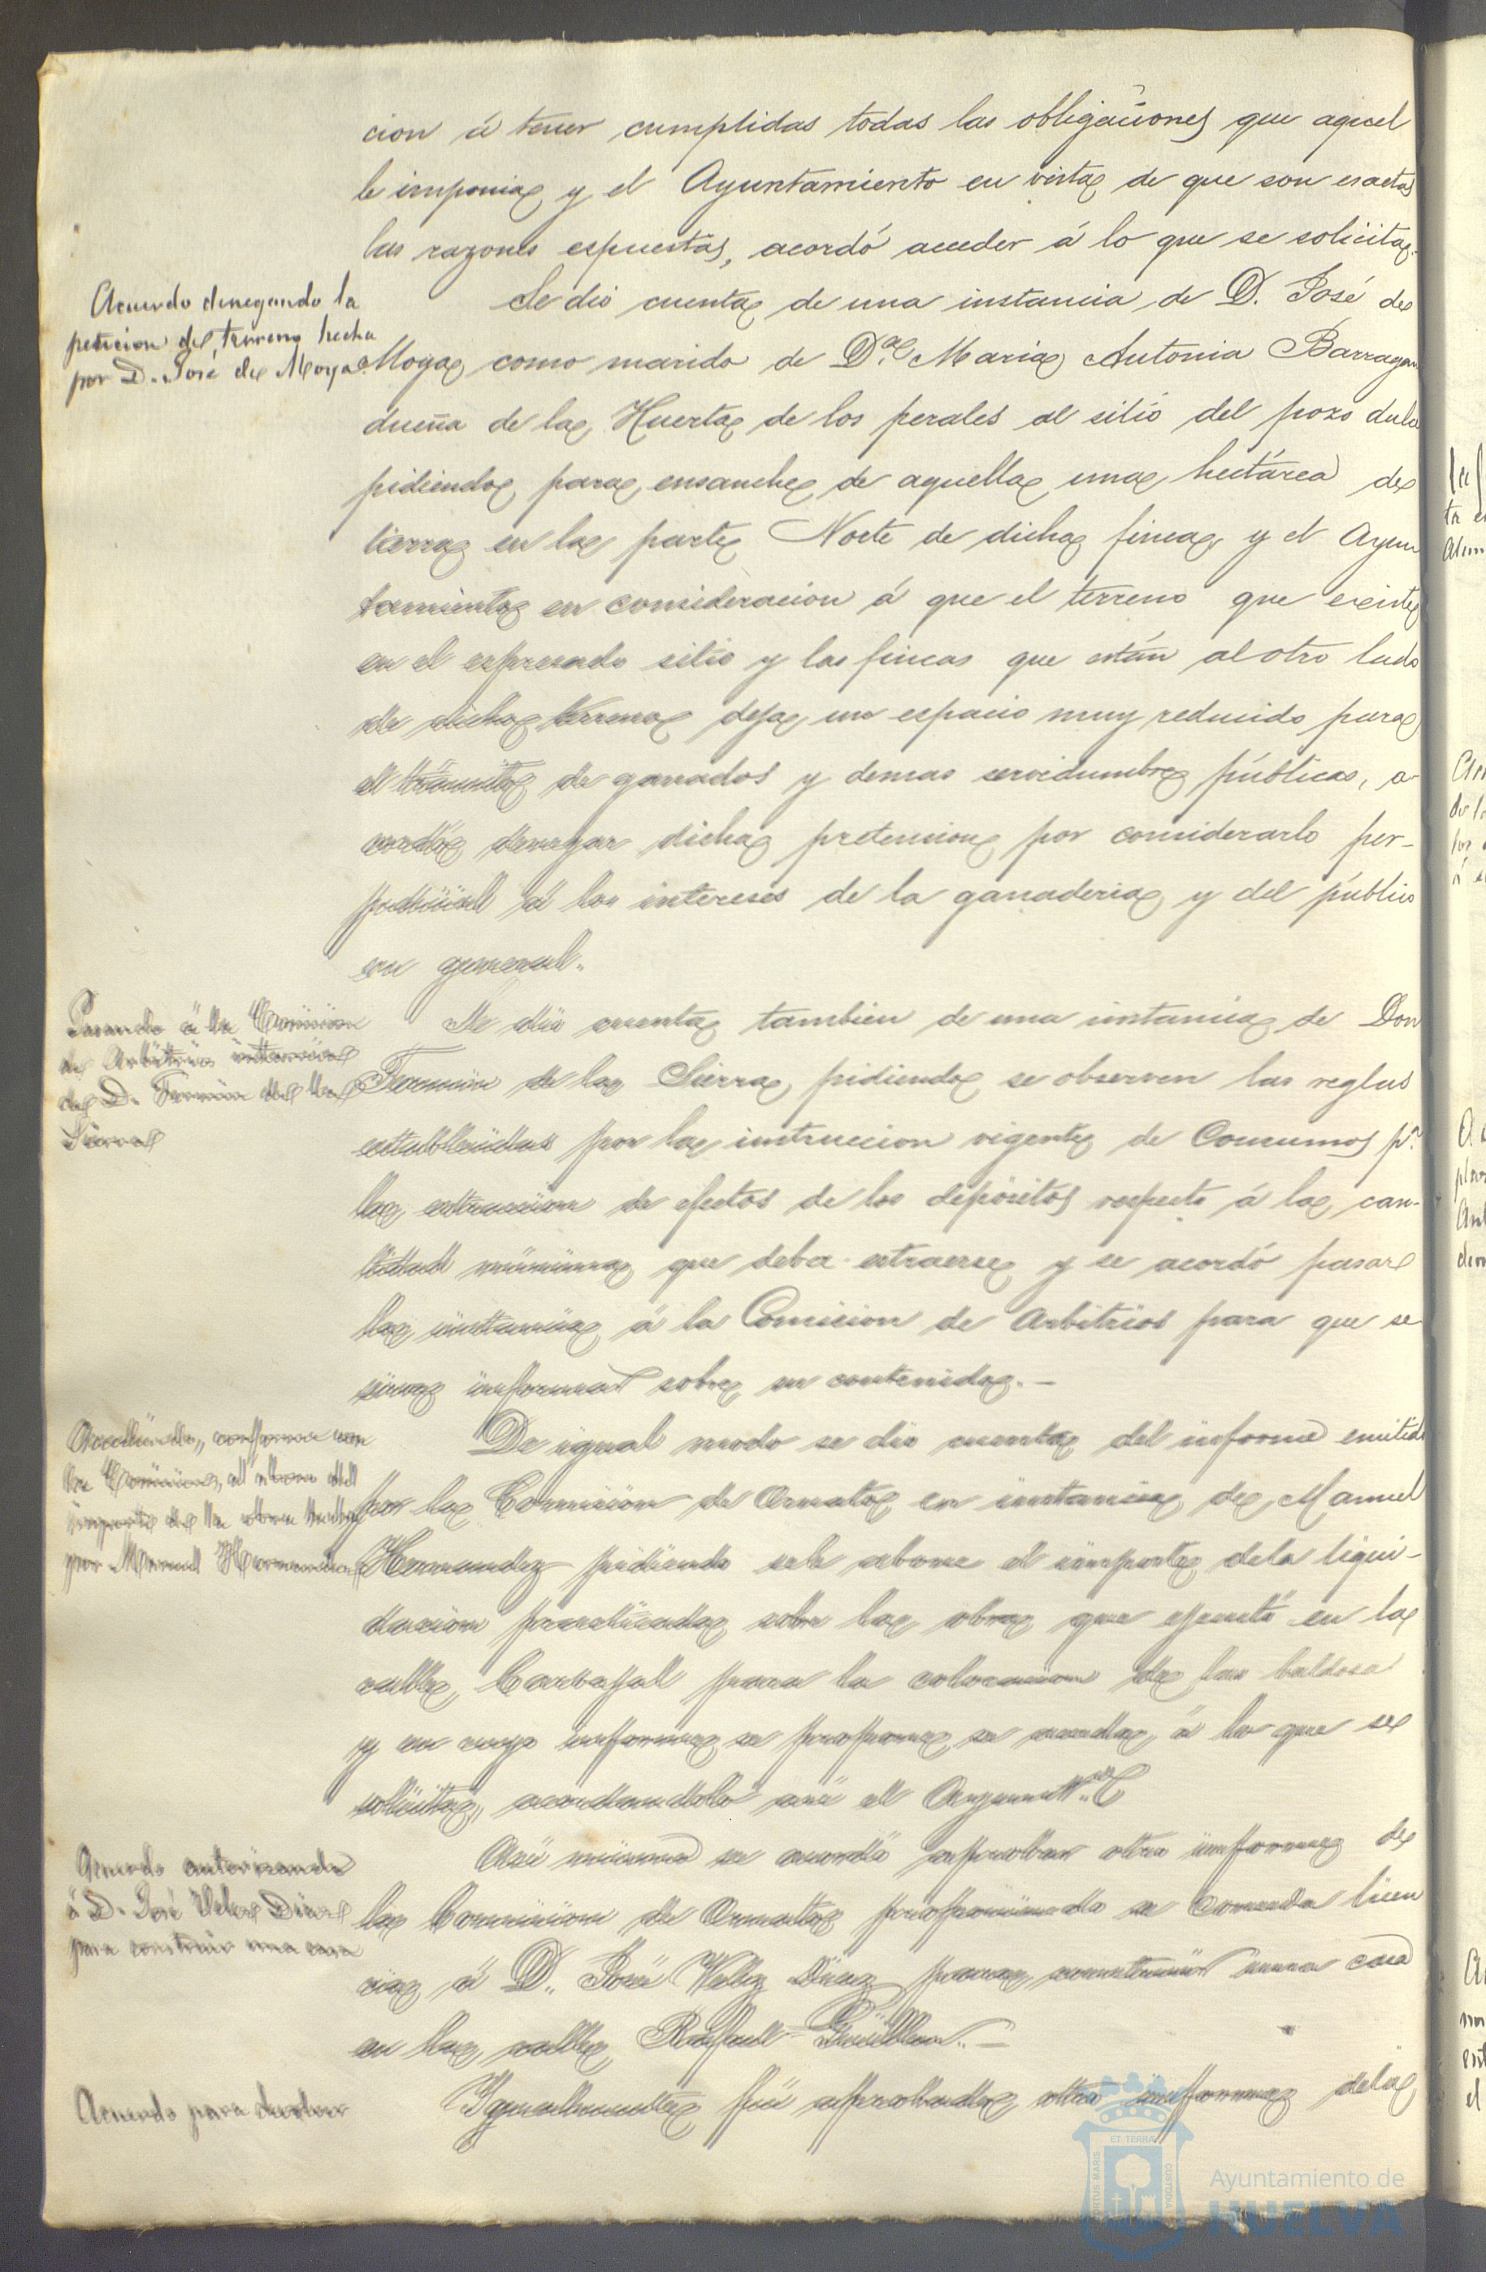 cion á tener cumplidas todas las obligaciones que aquel
le imponia y el Ayuntamiento en vista de que son esactas
las razones espuestas, acordó acceder á lo que se solicita.
Acuerdo denegando la
peticion de terreno hecha
por D. José de Moya
Se dió cuenta de una instancia de D. José de
Moya como marido de Dª Maria Antonia Barragan
dueña de la Huerta de los perales al sitio del pozo dulce
pidiendo para ensanche de aquella una hectárea de
tierra en la parte Norte de dicha finca y el Ayun
tamiento en consideracion á que el terreno que existe
en el espresado sitio y las fincas que están al otro lado
de dicho terreno deja un espacio muy reducido para
el tránsito de ganados y demas servidumbre públicas, a-
cordó denegar dicha pretencion por considerarlo per-
judicial á los intereses de la ganaderia y del público
en general.
Pasando á la Comision
de Arbitrios instancia
de D. Fermin de la
Sierra
Se dió cuenta tambien de una instancia de Don
Fermin de la Sierra pidiendo se observen las reglas
establecidas por la instruccion vigente de Consumos pª
la estraccion de efectos de los depósitos respecto á la can-
tidad mínima que deba estraerse y se acordó pasar
la instancia á la Comision de Arbitrios para que se
sirva informar sobre su contenido.—
Accediendo, conforme con
la Comision, al abono del
importe de la obra hecha
por Manuel Hernandez
De igual modo se dió cuenta del informe emitido
por la Comision de Ornato en instancia de Manuel
Hernandez pidiendo se le abone el importe de la liqui-
dacion practicada sobre la obra que ejecutó en la
calle Carbajal para la colocacion de las baldosa
y en cuyo informe se propone se acceda á lo que se
solicita, acordandolo asi el Ayuntº
Acuerdo autorizando
á D. José Velez Diaz
para construir una casa
Asi mismo se acordó aprobar otro informe de
la Comision de Ornato proponiendo se conceda licen
cia á D. José Velez Diaz para construir una casa
en la calle Rafael Guillen.—
Acuerdo para devolver
Igualmente fué aprobado otro informe de la
PORTUS MARIS
ET TERRA
CUSTODIA
Ayuntamiento de
HUELVA